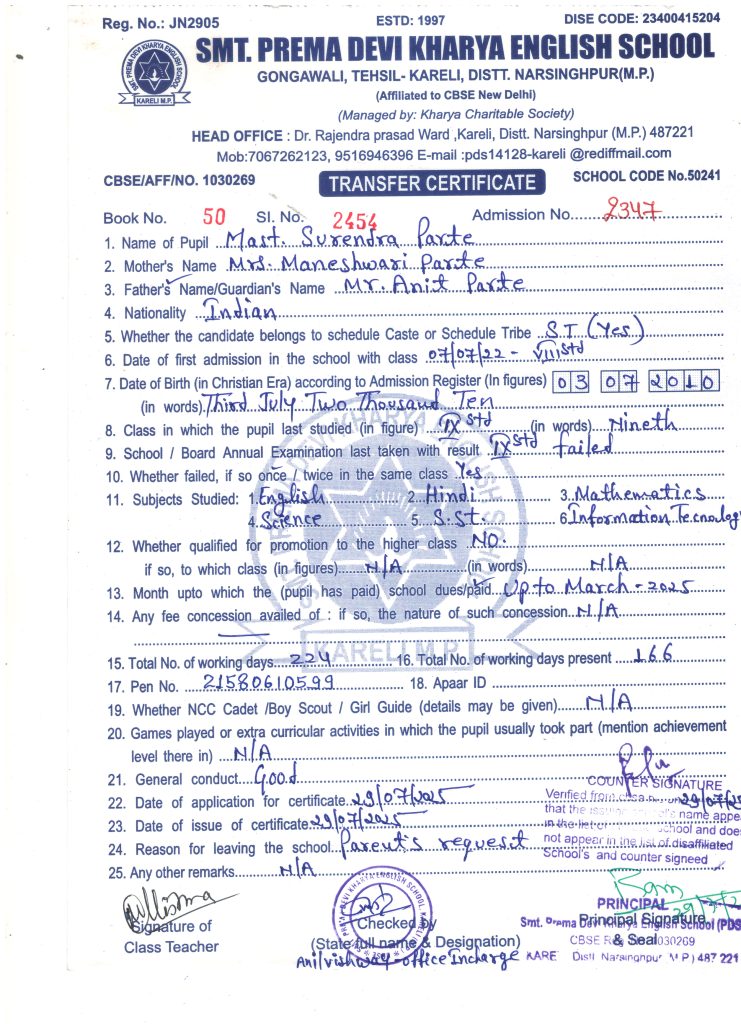 Reg. No.: JN2905 ESTD: 1997 DISE CODE: 23400415204
SMT. PREMA DEVI KHARYA ENGLISH SCHOOL
GONGAWALI, TEHSIL- KARELI, DISTT. NARSINGHPUR(M.P.)
(Affiliated to CBSE New Delhi)
(Managed by: Kharya Charitable Society)
HEAD OFFICE : Dr. Rajendra prasad Ward ,Kareli, Distt. Narsinghpur (M.P.) 487221
Mob:7067262123, 9516946396 E-mail :pds14128-kareli @rediffmail.com
CBSE/AFF/NO. 1030269 TRANSFER CERTIFICATE SCHOOL CODE No.50241
Book No. 50 Sl. No. 2454 Admission No. 2347
1. Name of Pupil Mast. Surendra Parte
2. Mother's Name Mrs. Maneshwari Parte
3. Father's Name/Guardian's Name Mr. Anit Parte
4. Nationality Indian
5. Whether the candidate belongs to schedule Caste or Schedule Tribe S.T (Yes)
6. Date of first admission in the school with class 07/07/22 - VIII std
7. Date of Birth (in Christian Era) according to Admission Register (In figures) 03 07 2010
(in words) Third July Two Thousand Ten
8. Class in which the pupil last studied (in figure) IX std (in words) Nineth
9. School / Board Annual Examination last taken with result IX std failed
10. Whether failed, if so once / twice in the same class Yes
11. Subjects Studied: 1. English 2. Hindi 3. Mathematics
4. Science 5. S.St. 6 Information Tecnology
12. Whether qualified for promotion to the higher class NO.
if so, to which class (in figures) N/A (in words) N/A
13. Month upto which the (pupil has paid) school dues/paid Up to March - 2025
14. Any fee concession availed of : if so, the nature of such concession N/A
15. Total No. of working days 224 16. Total No. of working days present 166
17. Pen No. 21580610599 18. Apaar ID
19. Whether NCC Cadet /Boy Scout / Girl Guide (details may be given) N/A
20. Games played or extra curricular activities in which the pupil usually took part (mention achievement
level there in) N/A
21. General conduct Good
COUNTER SIGNATURE
22. Date of application for certificate 29/07/2025 Verified from 29/07/25
23. Date of issue of certificate 29/07/2025 that the name appe
in the list of school and does
24. Reason for leaving the school Parent's request not appear in the list of disaffiliated
School's and counter signeed
25. Any other remarks N/A
SMT. PREMA DEVI KHARYA ENGLISH SCHOOL
KARELI M.P.
Signature of
Class Teacher
Checked by
(State full name & Designation)
Anil vishway - office Incharge
PRINCIPAL
Principal Signature
& Seal
Smt. Prema Devi Kharya English School (PDS
CBSE 1030269
KARE Distt Narsinghpur M P ) 487 221